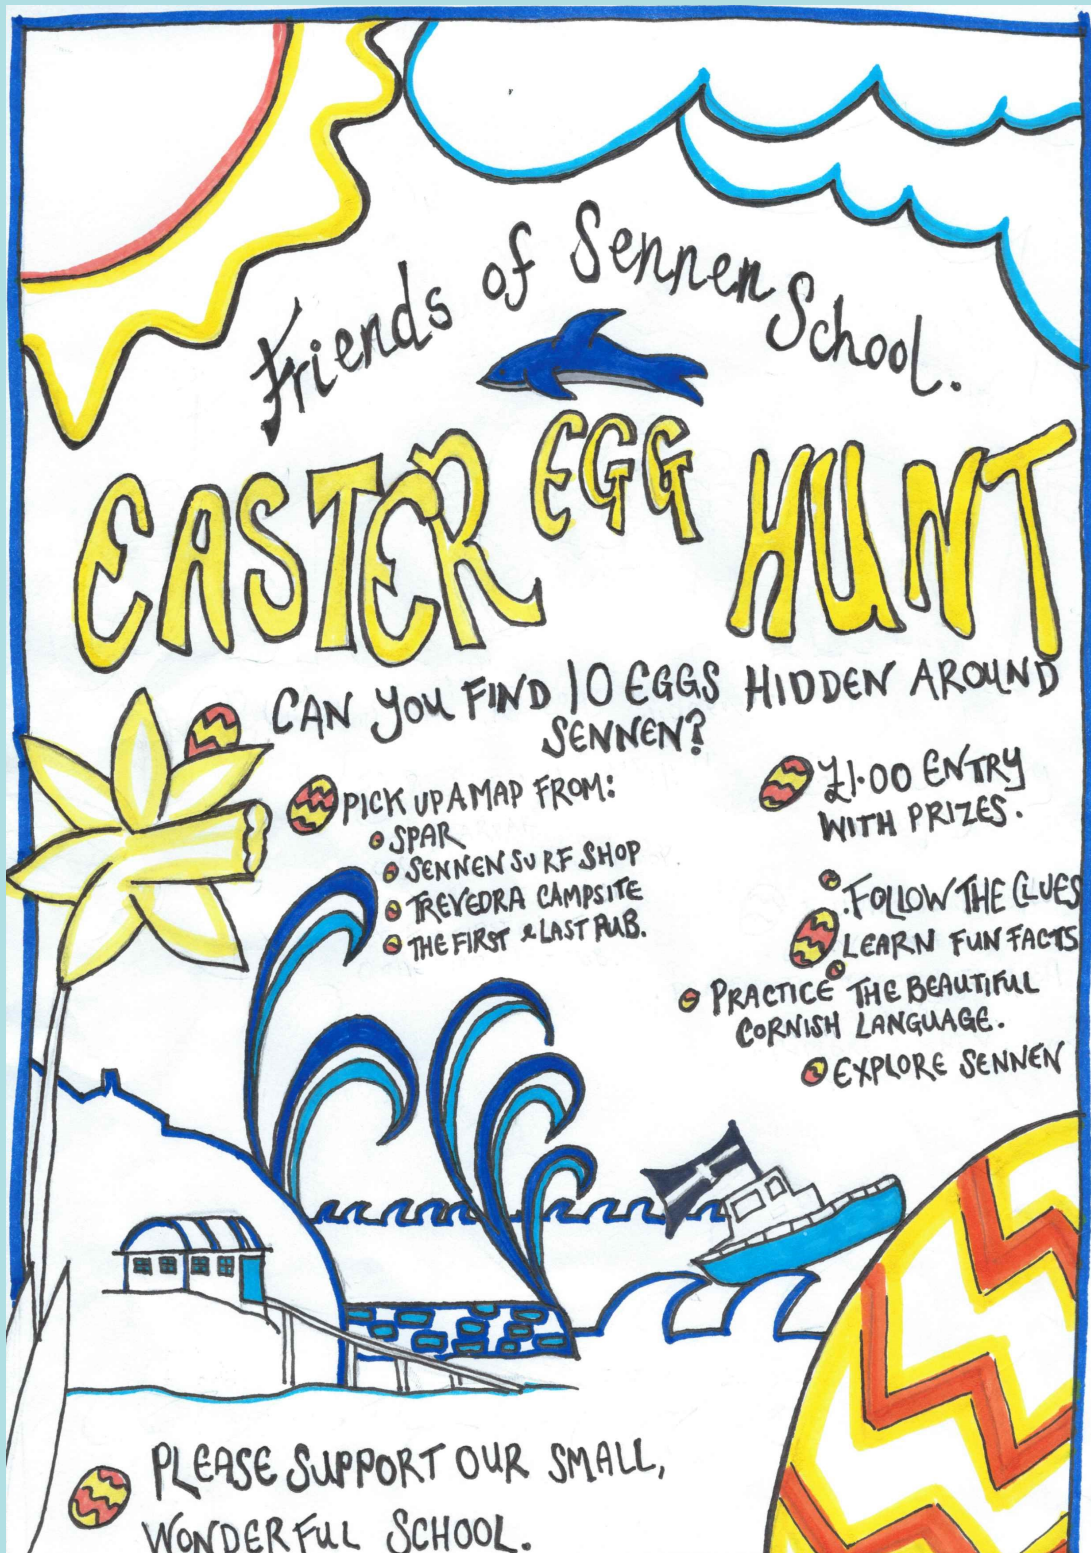 Friends of Sennen School.
EASTER EGG HUNT
CAN YOU FIND 10 EGGS HIDDEN AROUND
SENNEN?
PICK UP A MAP FROM:
SPAR
SENNEN SURF SHOP
TREVEDRA CAMPSITE
THE FIRST & LAST PUB.
£1.00 ENTRY
WITH PRIZES.
.FOLLOW THE CLUES
LEARN FUN FACTS
PRACTICE THE BEAUTIFUL
CORNISH LANGUAGE.
EXPLORE SENNEN
PLEASE SUPPORT OUR SMALL,
WONDERFUL SCHOOL.